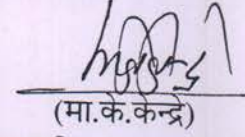 (मा.के.केन्द्रे)